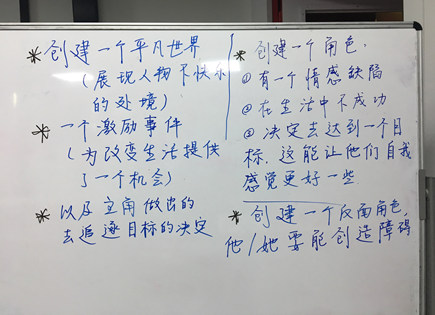 * 创建一个平凡世界
(展现人物不快乐
的处境)
* 一个激励事件
(为改变生活提供
了一个机会)
* 以及主角做出的
去追逐目标的决定
* 创建一个角色,
① 有一个情感缺陷
② 在生活中不成功
③ 决定去达到一个目
标,这能让他们自我
感觉更好一些
* 创建一个反面角色,
他/她要能创造障碍